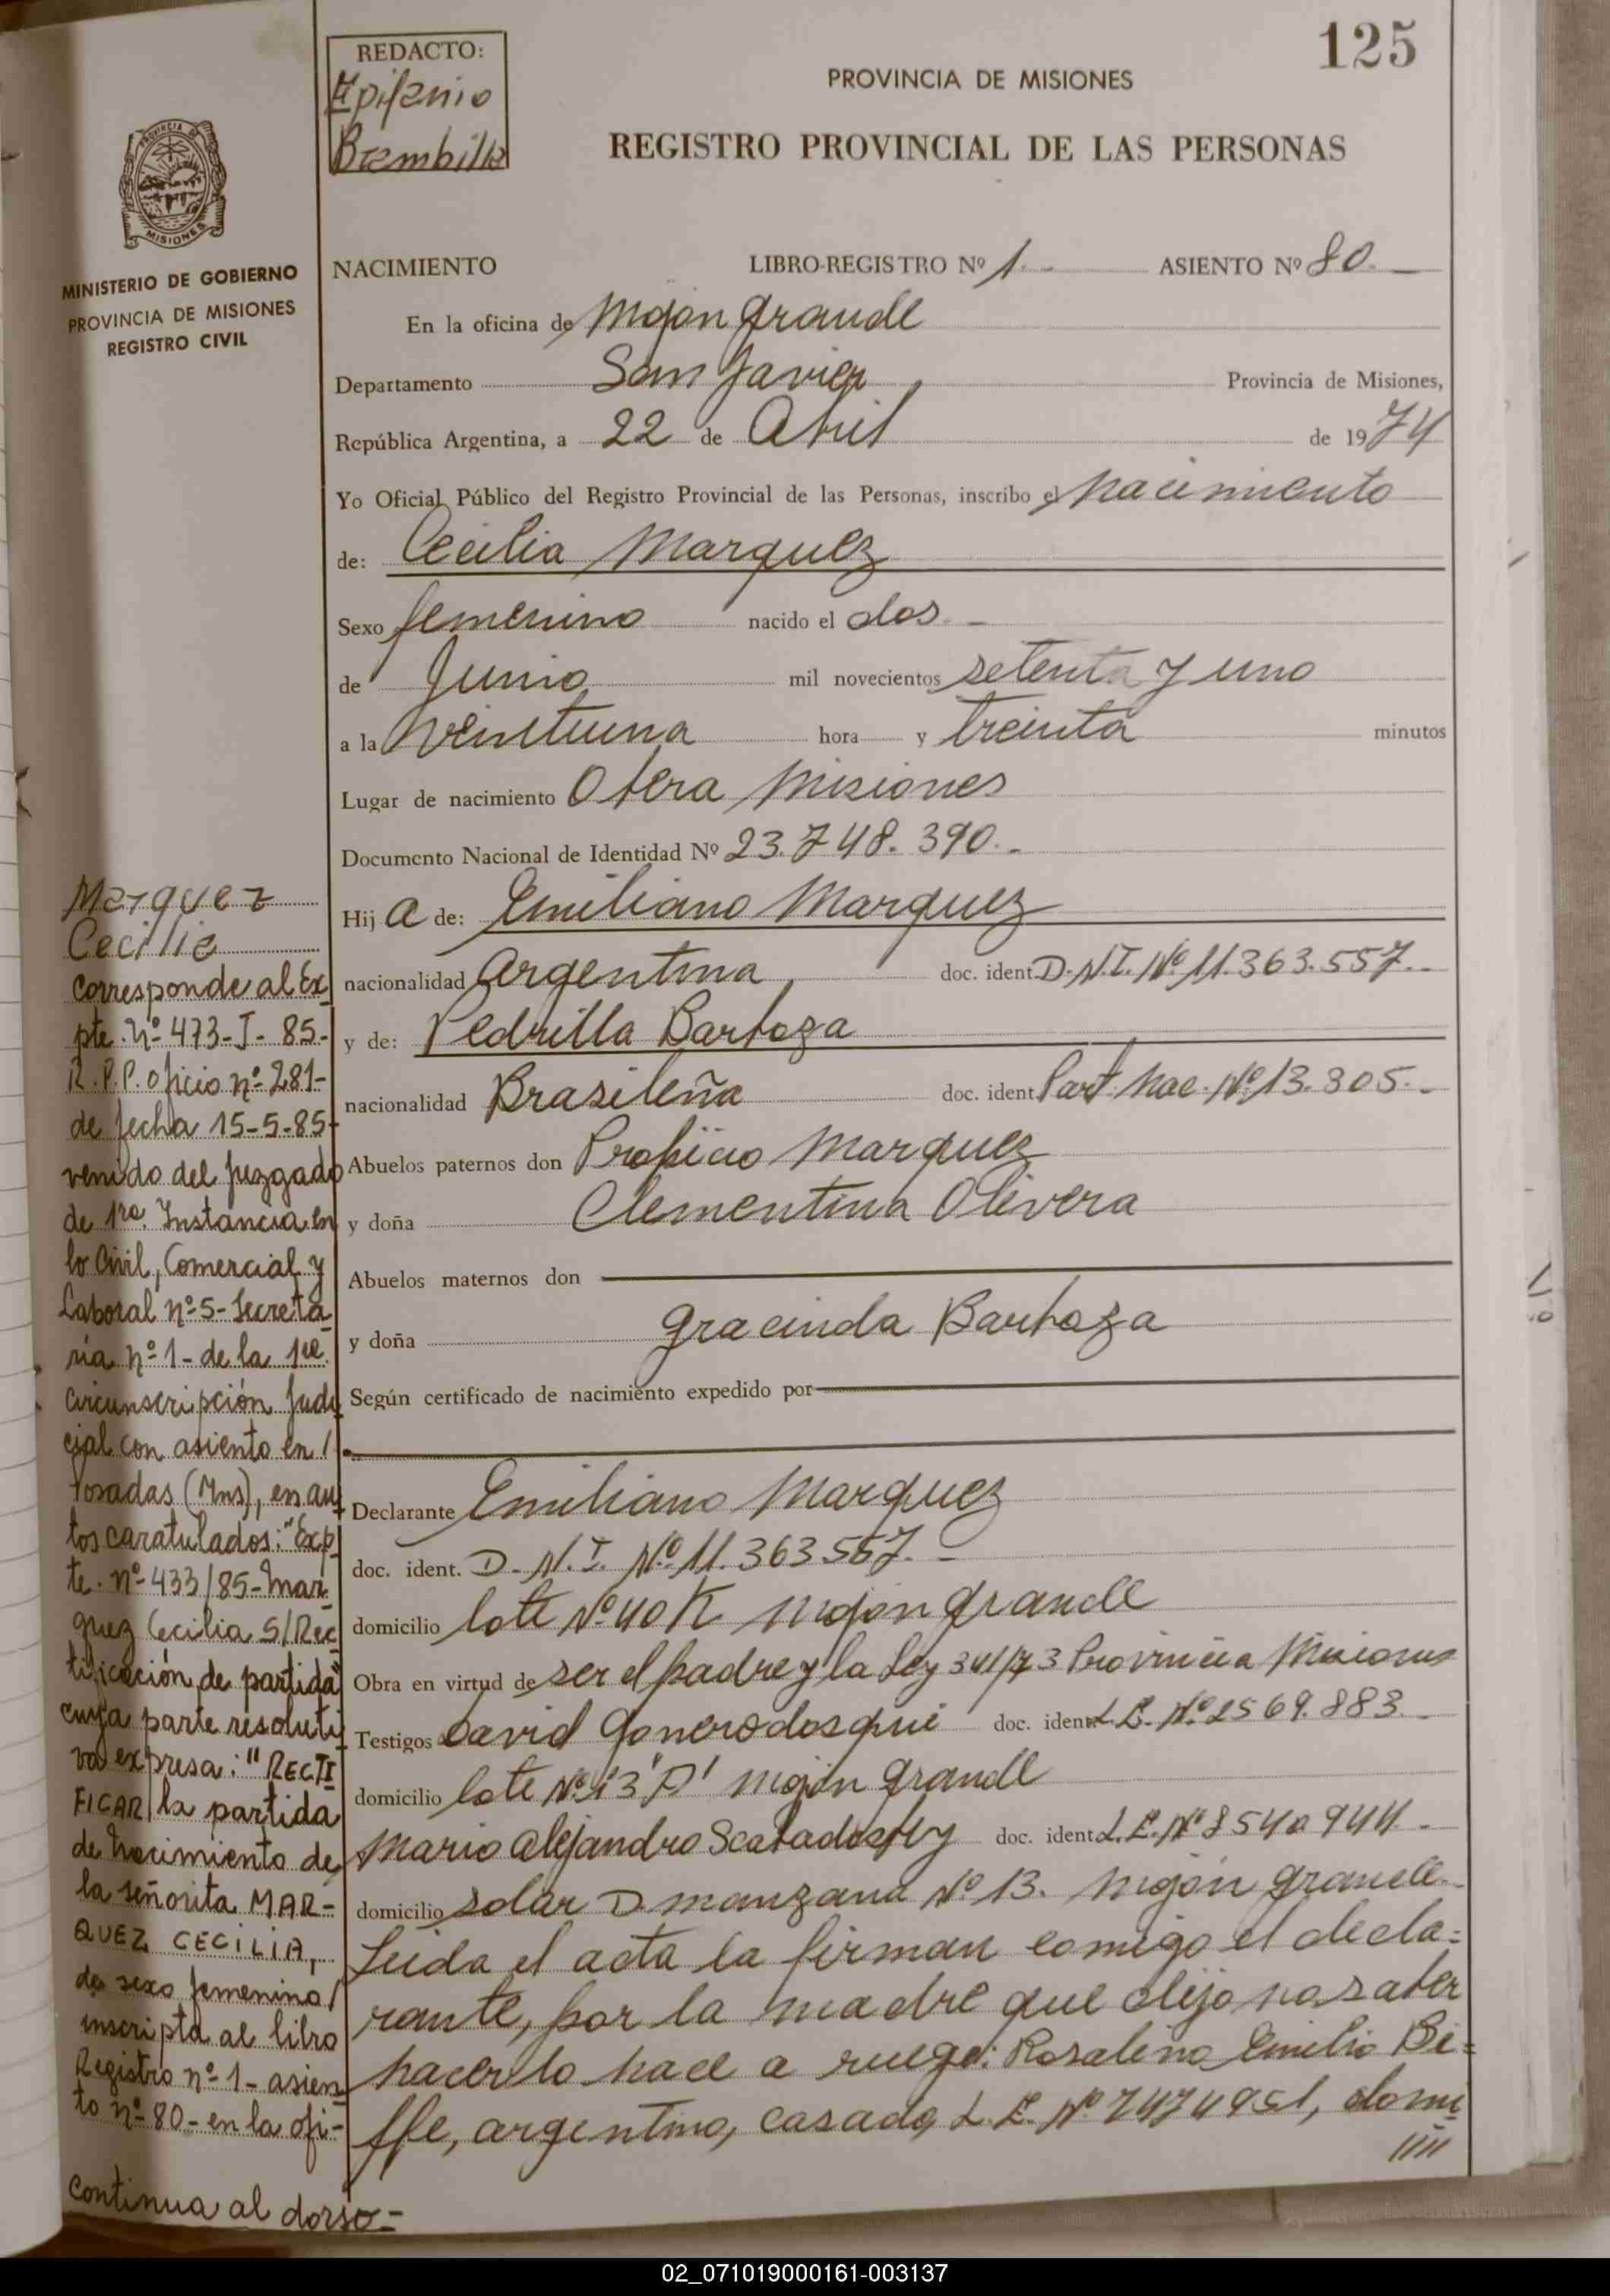 125
REDACTO:
Epifanio
Brembilla
PROVINCIA DE MISIONES
REGISTRO PROVINCIAL DE LAS PERSONAS
PROVINCIA DE
MISIONES
MINISTERIO DE GOBIERNO
PROVINCIA DE MISIONES
REGISTRO CIVIL
NACIMIENTO LIBRO-REGISTRO Nº 1.- ASIENTO Nº 80.-
En la oficina de Mojon grande
Departamento San Javier, Provincia de Misiones,
República Argentina, a 22 de Abril de 1974
Yo Oficial Público del Registro Provincial de las Personas, inscribo el nacimiento
de: Cecilia Marquez
Sexo femenino nacido el dos -
de Junio mil novecientos setenta y uno
a la veintiuna hora y treinta minutos
Lugar de nacimiento Obera Misiones
Documento Nacional de Identidad Nº 23.748.390.-
Hij a de: Emiliano Marquez
nacionalidad Argentina doc. ident. D.N.I. Nº 11.363.557.-
y de: Pedrilla Barboza
nacionalidad Brasileña doc. ident. Part. Nac. Nº 13.305.-
Abuelos paternos don Propicio Marquez
y doña Clementina Olivera
Abuelos maternos don
y doña Gracinda Barboza
Según certificado de nacimiento expedido por
Declarante Emiliano Marquez
doc. ident. D.N.I. Nº 11.363.557.-
domicilio lote Nº 40 K Mojon grande
Obra en virtud de ser el padre y la Ley 341/73 Provincia Misiones
Testigos David doc. ident. L.E. Nº 2569.883.-
domicilio lote Nº 13 'A' Mojón grande
Mario Alejandro doc. ident. L.E. Nº 8540944.-
domicilio solar D manzana Nº 13. Mojón grande.-
Leida el acta la firman comigo el decla=
rante, por la madre que dijo no saber
hacerlo hace a ruego: Rosalino Emilio Bi=
ffe, argentino, casado, L.E. Nº 7474951, domi
////
Marquez
Cecilia
Corresponde al Ex
pte. nº 473-J-85-
R.P.P. oficio nº 281-
de fecha 15-5-85-
venido del Juzgado
de 1ra. Instancia en
lo Civil, Comercial y
Laboral nº 5- Secreta
ria nº 1- de la 1ra.
Circunscripción Judi
cial con asiento en /
Posadas (Mns), en au
tos caratulados: "Exp
te. nº 433/85- Mar
quez Cecilia S/Rec
tificación de partida"
cuya parte resoluti
va expresa: "RECTI
FICAR la partida
de Nacimiento de
la señorita MAR-
QUEZ CECILIA,
de sexo femenino/
inscripta al libro
Registro nº 1- asien
to nº 80- en la ofi-
continua al dorso-
02_071019000161-003137